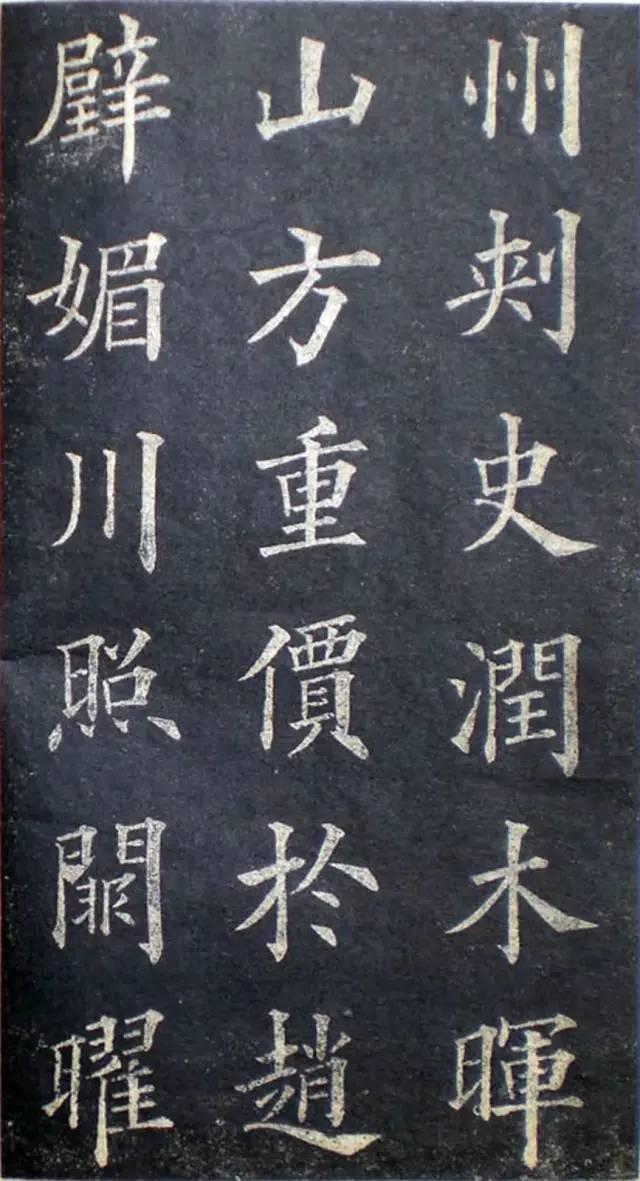 州刺史潤木暉
山方重價於趙
璧媚川照闕曜